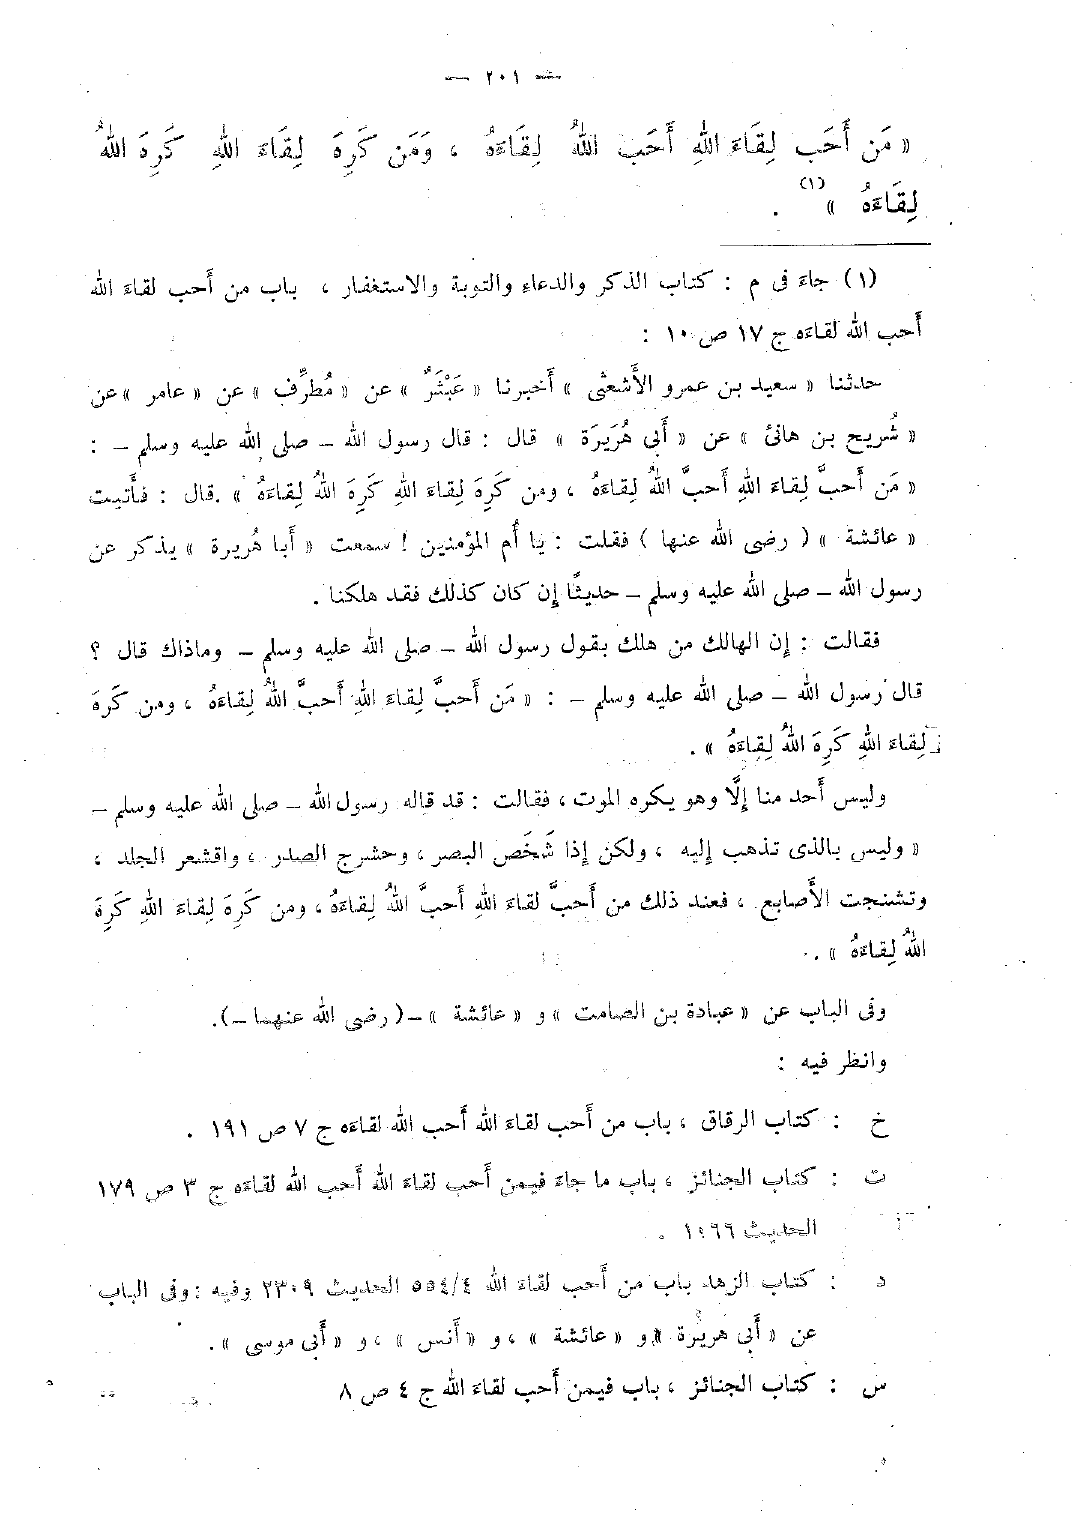 — ٢٠١ —
« مَن أَحَب لِقَاءَ اللهِ أَحَب اللهُ لِقَاءَهُ ، وَمَن كَرِهَ لِقَاءَ اللهِ كَرِهَ اللهُ
لِقَاءَهُ » (١) .
(١) جاءَ فى م : كتاب الذكر والدعاءِ والتوبة والاستغفار ، باب من أَحب لقاءَ الله
أَحب الله لقاءَه ج ١٧ ص ١٠ :
حدثنا « سعيد بن عمرو الأَشعثى » أَخبرنا « عَبْثَرٌ » عن « مُطرِّف » عن « عامر » عن
« شُريح بن هانئ » عن « أَبى هُرَيرَة » قال : قال رسول الله – صلى الله عليه وسلم – :
« مَن أَحبَّ لِقاءَ اللهِ أَحبَّ اللهُ لِقاءَهُ ، ومن كَرِهَ لِقاءَ اللهِ كَرِهَ اللهُ لِقاءَهُ » . قال : فأَتيت
« عائشة » ( رضى الله عنها ) فقلت : يا أُم المؤمنين ! سمعت « أَبا هُريرة » يذكر عن
رسول الله – صلى الله عليه وسلم – حديثًا إِن كان كذلك فقد هلكنا .
فقالت : إِن الهالك من هلك بقول رسول الله – صلى الله عليه وسلم – وماذاك قال ؟
قال رسول الله – صلى الله عليه وسلم – : « مَن أَحبَّ لِقاءَ اللهِ أَحبَّ اللهُ لِقاءَهُ ، ومن كَرِهَ
لِقاءَ اللهِ كَرِهَ اللهُ لِقاءَهُ » .
وليس أَحد منا إِلَّا وهو يكره الموت ، فقالت : قد قاله رسول الله – صلى الله عليه وسلم –
« وليس بالذى تذهب إِليه ، ولكن إِذا شَخَص البصر ، وحشرج الصدر ، واقشعر الجلد ،
وتشنجت الأَصابع ، فعند ذلك من أَحبَّ لقاءَ اللهِ أَحبَّ اللهُ لِقاءَهُ ، ومن كَرِهَ لِقاءَ اللهِ كَرِهَ
اللهُ لِقاءَهُ » .
وفى الباب عن « عبادة بن الصامت » و « عائشة » –( رضى الله عنهما –).
وانظر فيه :
خ : كتاب الرقاق ، باب من أَحب لقاءَ الله أَحب الله لقاءَه ج ٧ ص ١٩١ .
ت : كتاب الجنائز ، باب ما جاءَ فيمن أَحب لقاءَ الله أَحب الله لقاءَه ج ٣ ص ١٧٩
الحديث ١٠٦٦ .
د : كتاب الزهد باب من أَحب لقاءَ الله ٥٥٤/٤ الحديث ٢٣٠٩ وفيه : وفى الباب
عن « أَبى هريرة » و « عائشة » ، و « أَنس » ، و « أَبى موسى » .
س : كتاب الجنائز ، باب فيمن أَحب لقاءَ الله ج ٤ ص ٨